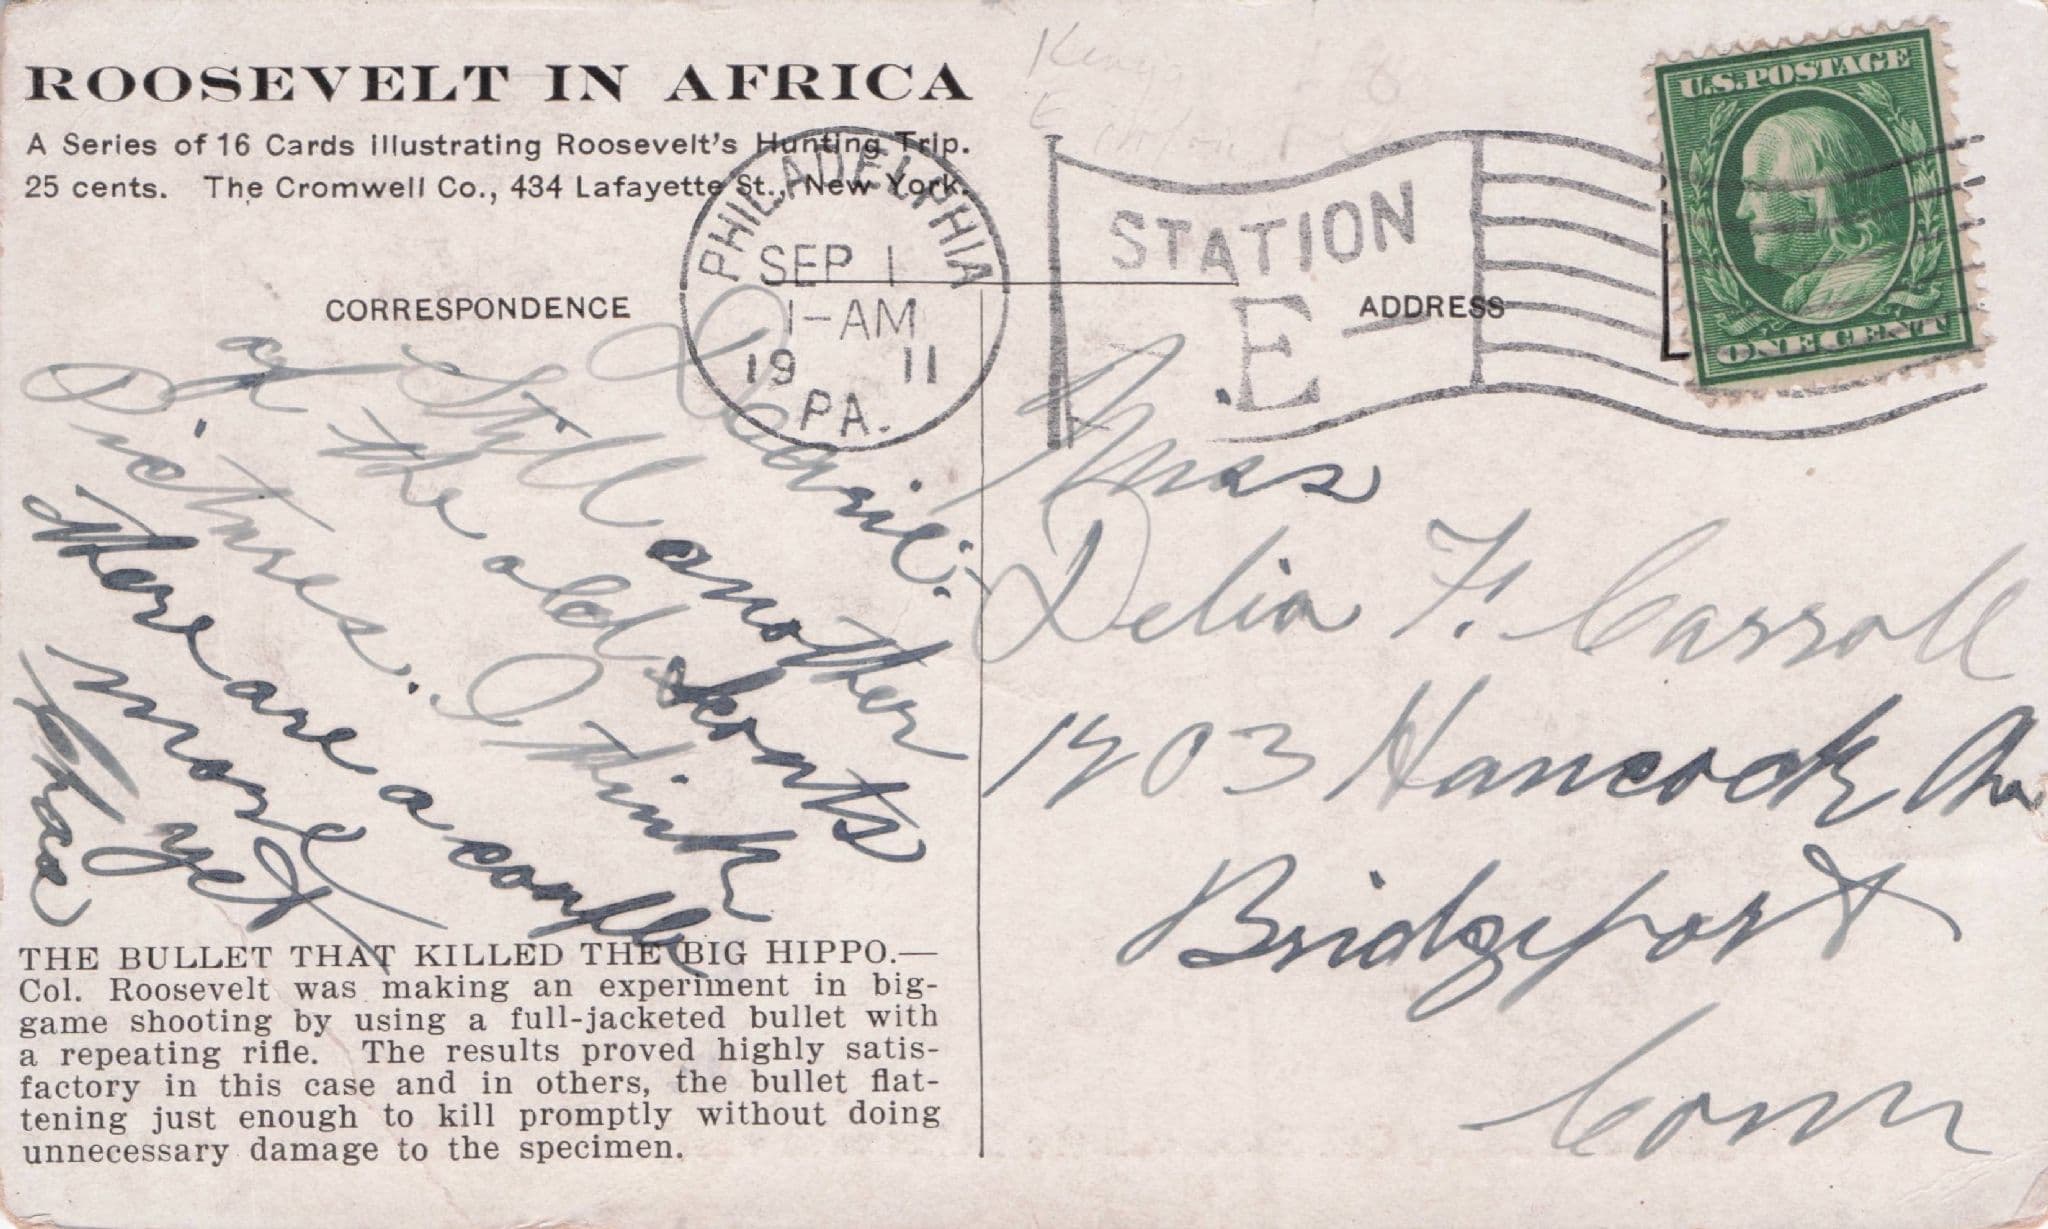 ROOSEVELT IN AFRICA
A Series of 16 Cards illustrating Roosevelt's Hunting Trip.
25 cents. The Cromwell Co., 434 Lafayette St., New York.
Kenya
U.S. POSTAGE
ONE CENT
PHILADELPHIA
SEP 1
1-AM
1911
PA.
STATION
E
CORRESPONDENCE
ADDRESS
Dearie:
Still another
of the old skonts
pictures. I think
there are a couple
more yet
Chas
Mrs
Delia F. Carroll
1403 Hancock Ave
Bridgeport
Conn
THE BULLET THAT KILLED THE BIG HIPPO.—
Col. Roosevelt was making an experiment in big-
game shooting by using a full-jacketed bullet with
a repeating rifle. The results proved highly satis-
factory in this case and in others, the bullet flat-
tening just enough to kill promptly without doing
unnecessary damage to the specimen.